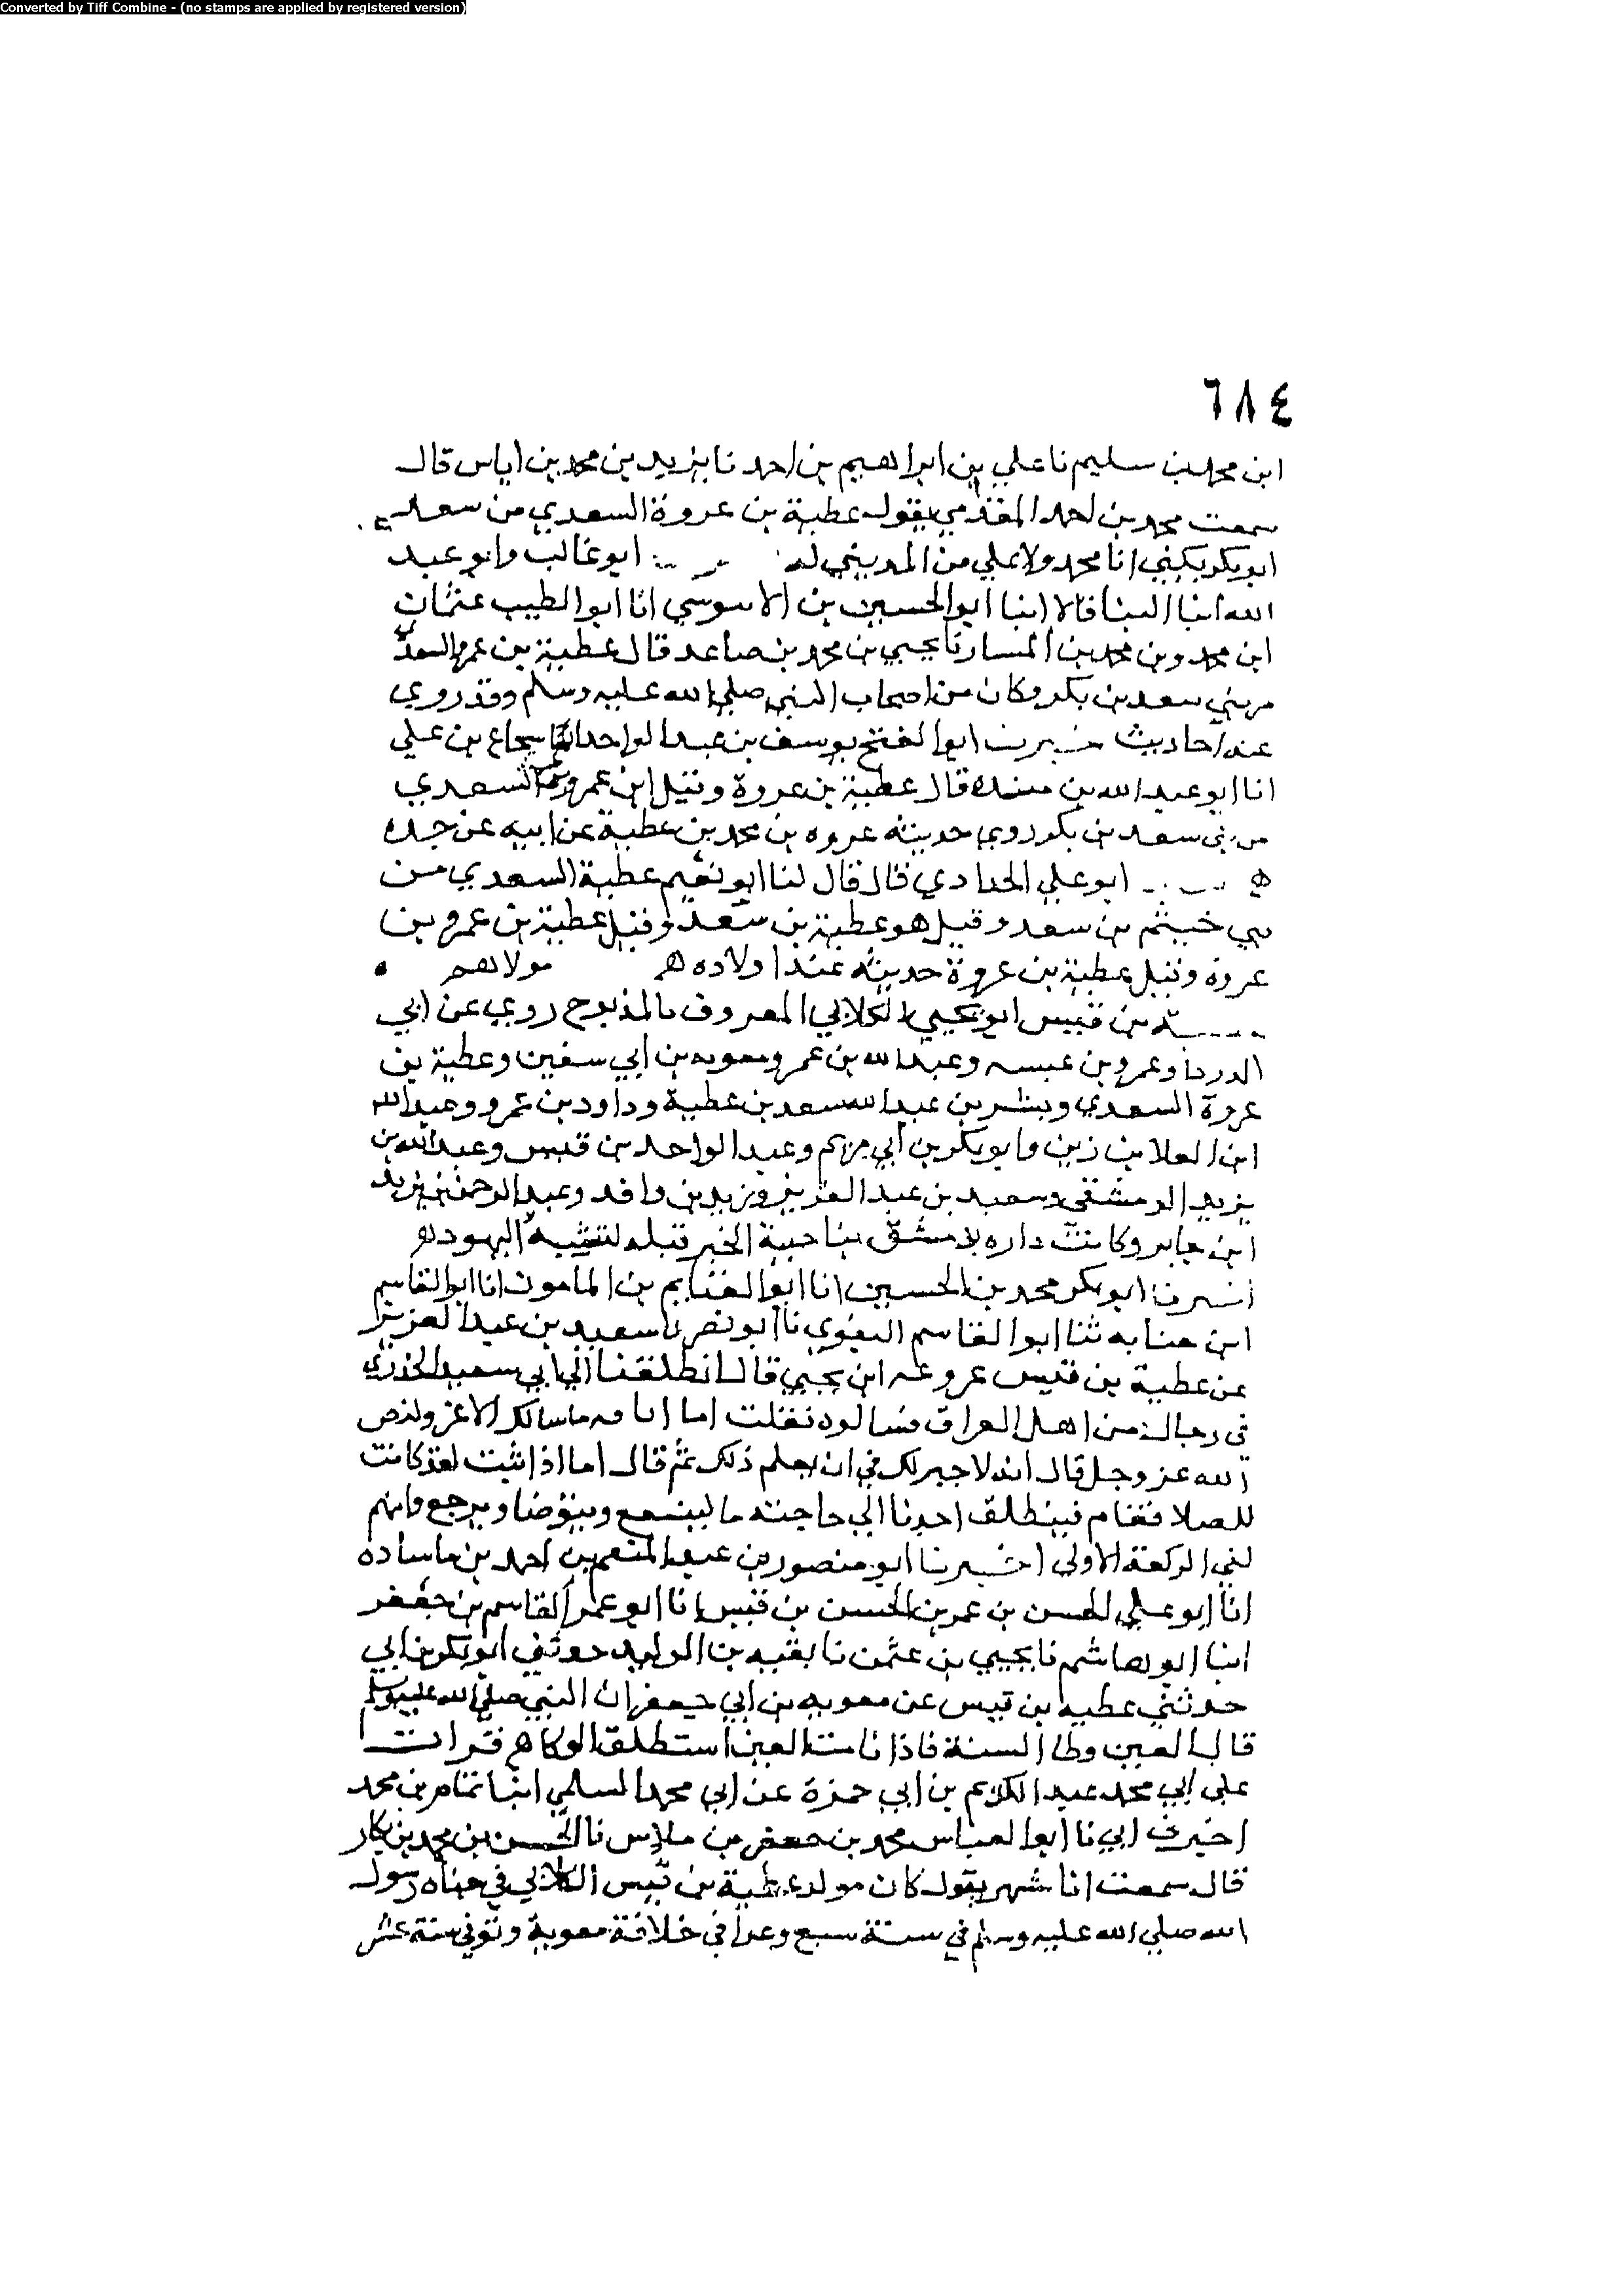 Converted by Tiff Combine - (no stamps are applied by registered version)
٦٨٤
ابن محمد بن سليم نا علي بن ابراهيم بن احمد نا يزيد بن محمد بن اياس قال
سمعت محمد بن احمد المقدمي يقول عطية بن عروة السعدي من سعد بن
ابو بكر يكني انا محمد ولا علي من المديني له ابو غالب وابو عبد
الله ابنا البنا قالا انبا ابو الحسين بن الابنوسي انا ابو الطيب عثمان
ابن محمد وبن محمد بن المسار نا يحيي بن محمد بن صاعد قال عطية بن عمرو السعدي
من بني سعد بن بكر وكان من اصحاب النبي صلي الله عليه وسلم وقد روي
عنه احاديث ابو الفتح يوسف بن عبد الواحد انا شجاع بن علي
انا ابو عبد الله بن منده قال عطية بن عروة وقيل ابن عمرو السعدي
من بني سعد بن بكر روي حديثه عروه بن محمد بن عطية عن ابيه عن جده
ه ابو علي الحدادي قال قال لنا ابو نعيم عطية السعدي من
بني خيثم بن سعد وقيل هو عطية بن سعد وقيل عطية بن عمرو بن
عروة وقيل عطية بن عروة حديثه عند اولاده ه مولاهم
بن قيس ابو يحيي الكلابي المعروف بالمذبوح روي عن ابي
الدردا وعمرو بن عبسه وعبد الله بن عمر ومعويه بن ابي سفين وعطية بن
عروة السعدي وبشر بن عبد الله سعد بن عطية وداود بن عمرو وعبد الله
ابن العلا بن زبن وابو بكر بن ابي مريم وعبد الواحد بن قيس وعبد الله بن
يزيد الدمشقي وسعيد بن عبد العزيز ويزيد بن واقد وعبد الرحمن بن يزيد
ابن جابر وكانت داره بدمشق بناحية الخير قبله اليهود ه
ابو بكر محمد بن الحسين انا ابو الغنايم بن المامون انا ابو القاسم
ابن حبابه ثنا ابو القاسم البغوي نا ابو نصر نا سعيد بن عبد العزيز
عن عطية بن قيس ابن يحيي قال انطلقنا الي ابي سعيد الخدري
في رجال من اهل العراق فسالوه فقلت اما انا ما سالك الا عن
الله عز وجل قال انه لا خير لك في ان تعلم ذلك ثم قال اما اذ ابيت لقد كانت
للصلا فتقام فينطلق احدنا الي حاجته ويتوضا ويرجع وانهم
لفي الركعة الاولى اخبرنا ابو منصور بن عبد المنعم بن احمد بن ماساده
انا ابو علي الحسن بن عمر بن الحسن بن قيس انا ابو عمر القاسم بن جعفر
انبا ابو هاشم نا يحيي بن عثمن نا بقيه بن الوليد حدثني ابو بكر بن ابي
حدثني عطيه بن قيس عن معويه بن ابي جعفر ان النبي صلي الله عليه وسلم
قال العين وكا السنة فاذا نامت العين استطلق الوكا ه قرات
علي ابي محمد عبد الكريم بن ابي حمزة عن ابي محمد السلمي انبا تمام بن محمد
اخبرني ابي نا ابو العباس محمد بن جعفر بن ملاس نا الحسن بن محمد بن بكار
قال سمعت انا شهر يقول كان مولد عطية بن قيس الكلابي في حياه رسول
الله صلي الله عليه وسلم في سنة سبع وغزا في خلافة معوية وتوفي سنة عشر